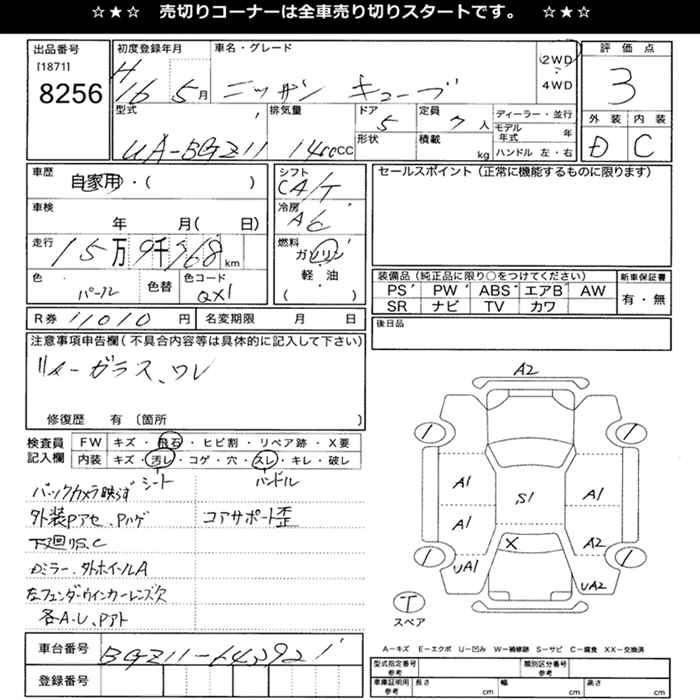 ☆★☆ 売切りコーナーは全車売り切りスタートです。 ☆★☆
出品番号
[1871]
8256
初度登録年月
H
16 5月
車名・グレード
ニッサン キューブ
2WD
・
4WD
評価点
3
外装 内装
D C
型式
UA-BGZ11
排気量
1400CC
ドア
5
形状
定員
7人
積載
kg
ディーラー・並行
モデル年式 年
ハンドル 左・右
車歴
自家用・( )
車検
年 月( 日)
走行
15万9千768km
色
パール
色替
色コード
QX1
シフト
CA/T
冷房
AC
燃料
ガソリン
軽・油
( )
セールスポイント(正常に機能するものに限ります)
装備品(純正品に限り○をつけてください)
PS PW ABS エアB AW
SR ナビ TV カワ
新車保証書
有・無
後日品
R券 11010円
名変期限 月 日
注意事項申告欄(不具合内容等は具体的に記入して下さい)
リヤーガラス、ワレ
修復歴 有〔箇所 〕
検査員
記入欄
FW キズ・飛石・ヒビ割・リペア跡・X要
内装 キズ・汚レ・コゲ・穴・スレ・キレ・破レ
シート ハンドル
バックカメラ映らず
外装Pアセ、Pハゲ コアサポート歪
下廻りS、C
Dミラー、外ホイールA
左フェンダーウインカーレンズ欠
各A.U、Pアト
車台番号
登録番号
A2
A1
A1
UA1
S1
X
A1
A2
UA2
T
スペア
A-キズ E-エクボ U-凹み W-補修跡 S-サビ C-腐食 XX-交換済
型式指定番号
参考
類別区分番号
参考
車庫証明用
参考
長さ cm
幅 cm
高さ cm